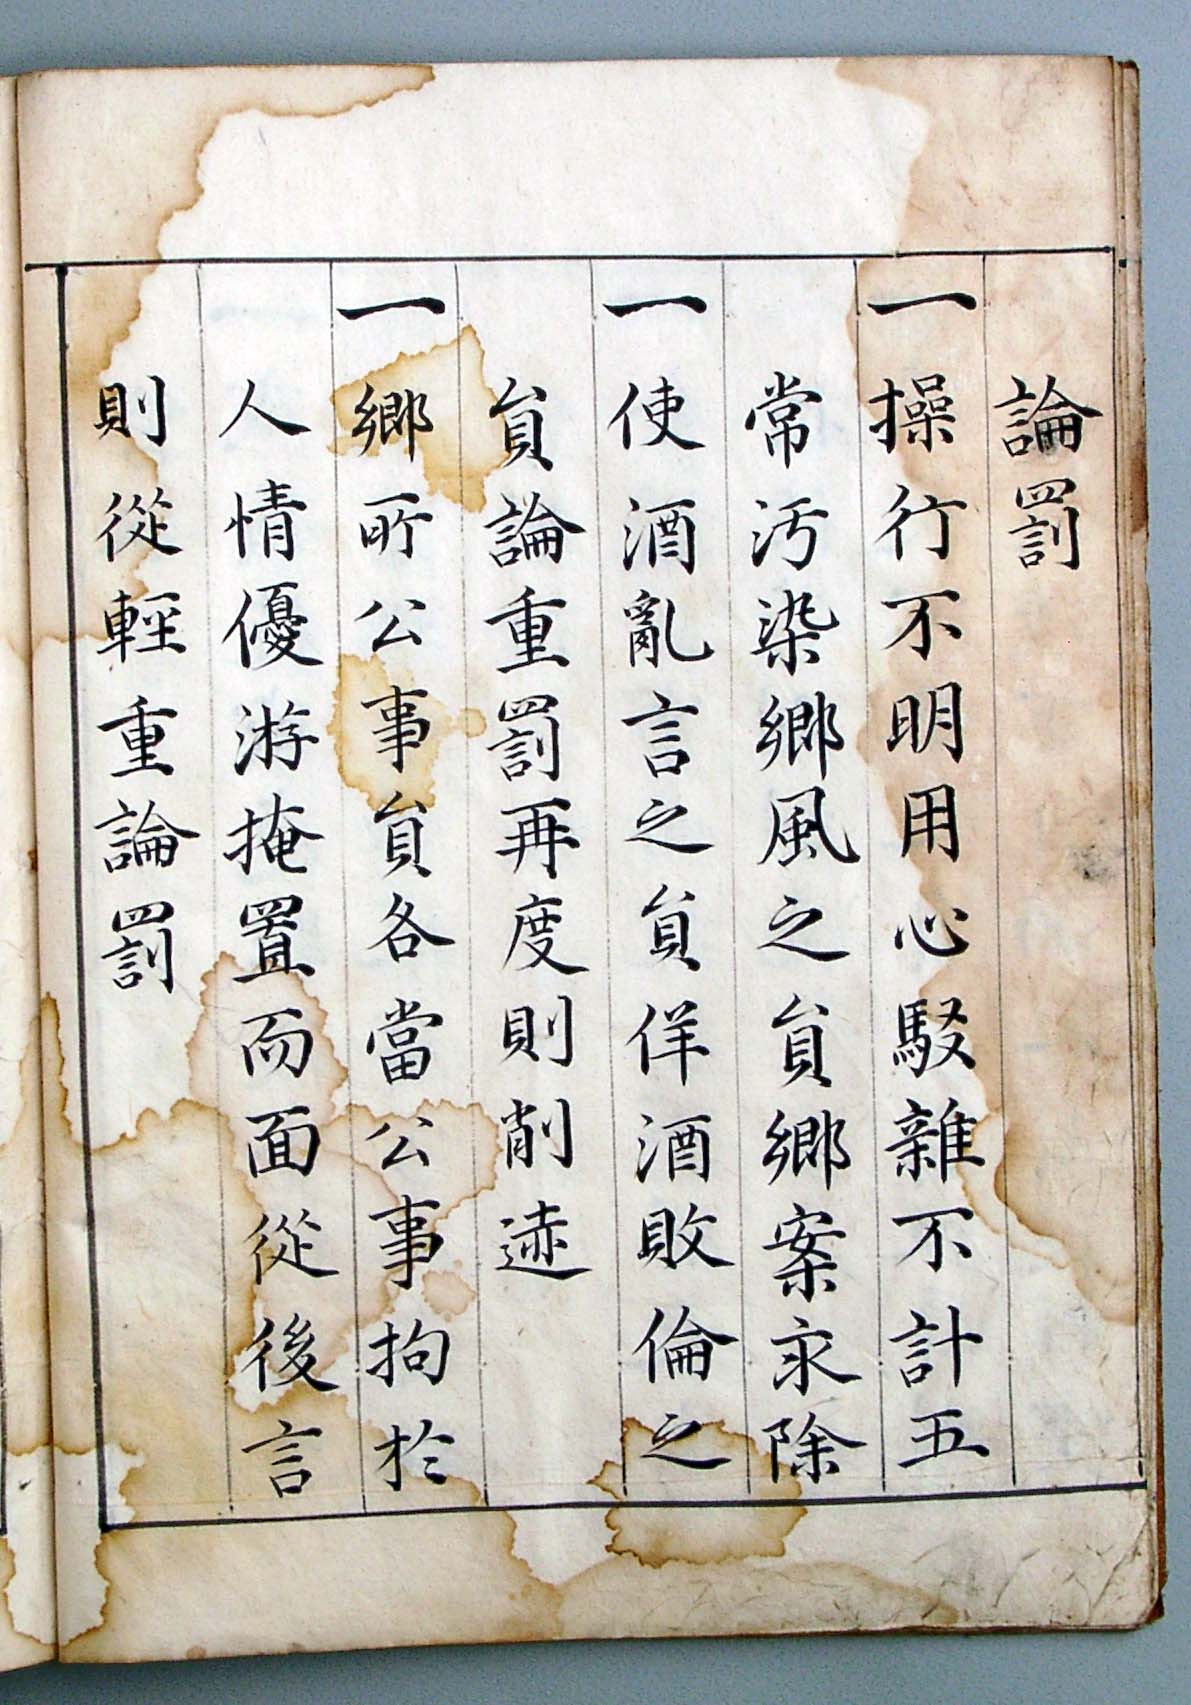 論罰
一操行不明用心駁雜不計五
常汚染鄕風之負鄕案永除
一使酒亂言之負佯酒敗倫之
負論重罰再度則削迹
一鄕所公事負各當公事拘於
人情優游掩置而面從後言
則從輕重論罰